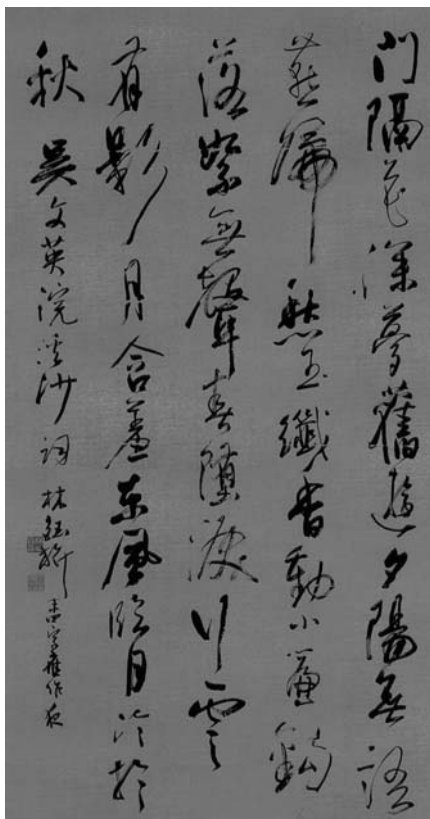 門隔花深夢舊遊夕陽無語
燕歸愁玉纖香動小簾鉤
落絮無聲春墮淚行雲
有影月含羞東風臨月冷於
秋 吳文英浣溪沙詞 林